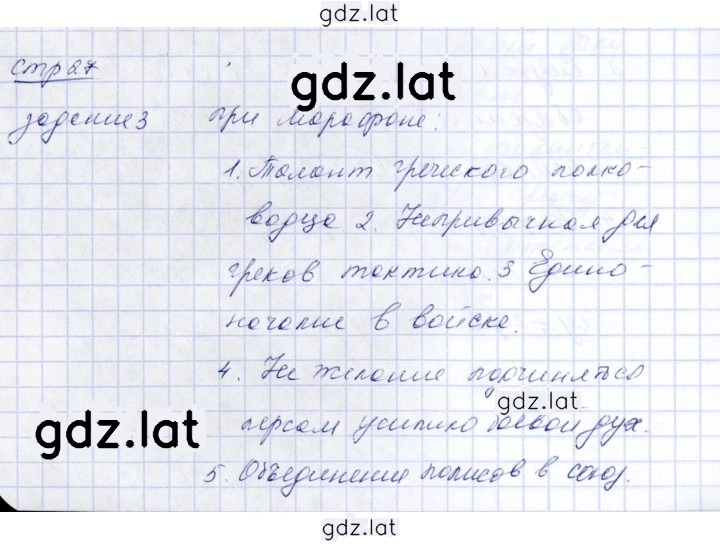 gdz.lat
стр 27
gdz.lat
задание 3 При Марафоне:
1. Талант греческого полко-
водца 2. Непривычная для
греков тактика. 3 Едино-
началие в войске.
4. Не желание подчиняться
gdz.lat
gdz.lat
персам усилило боевой дух.
5. Объединение полисов в союз.
gdz.lat